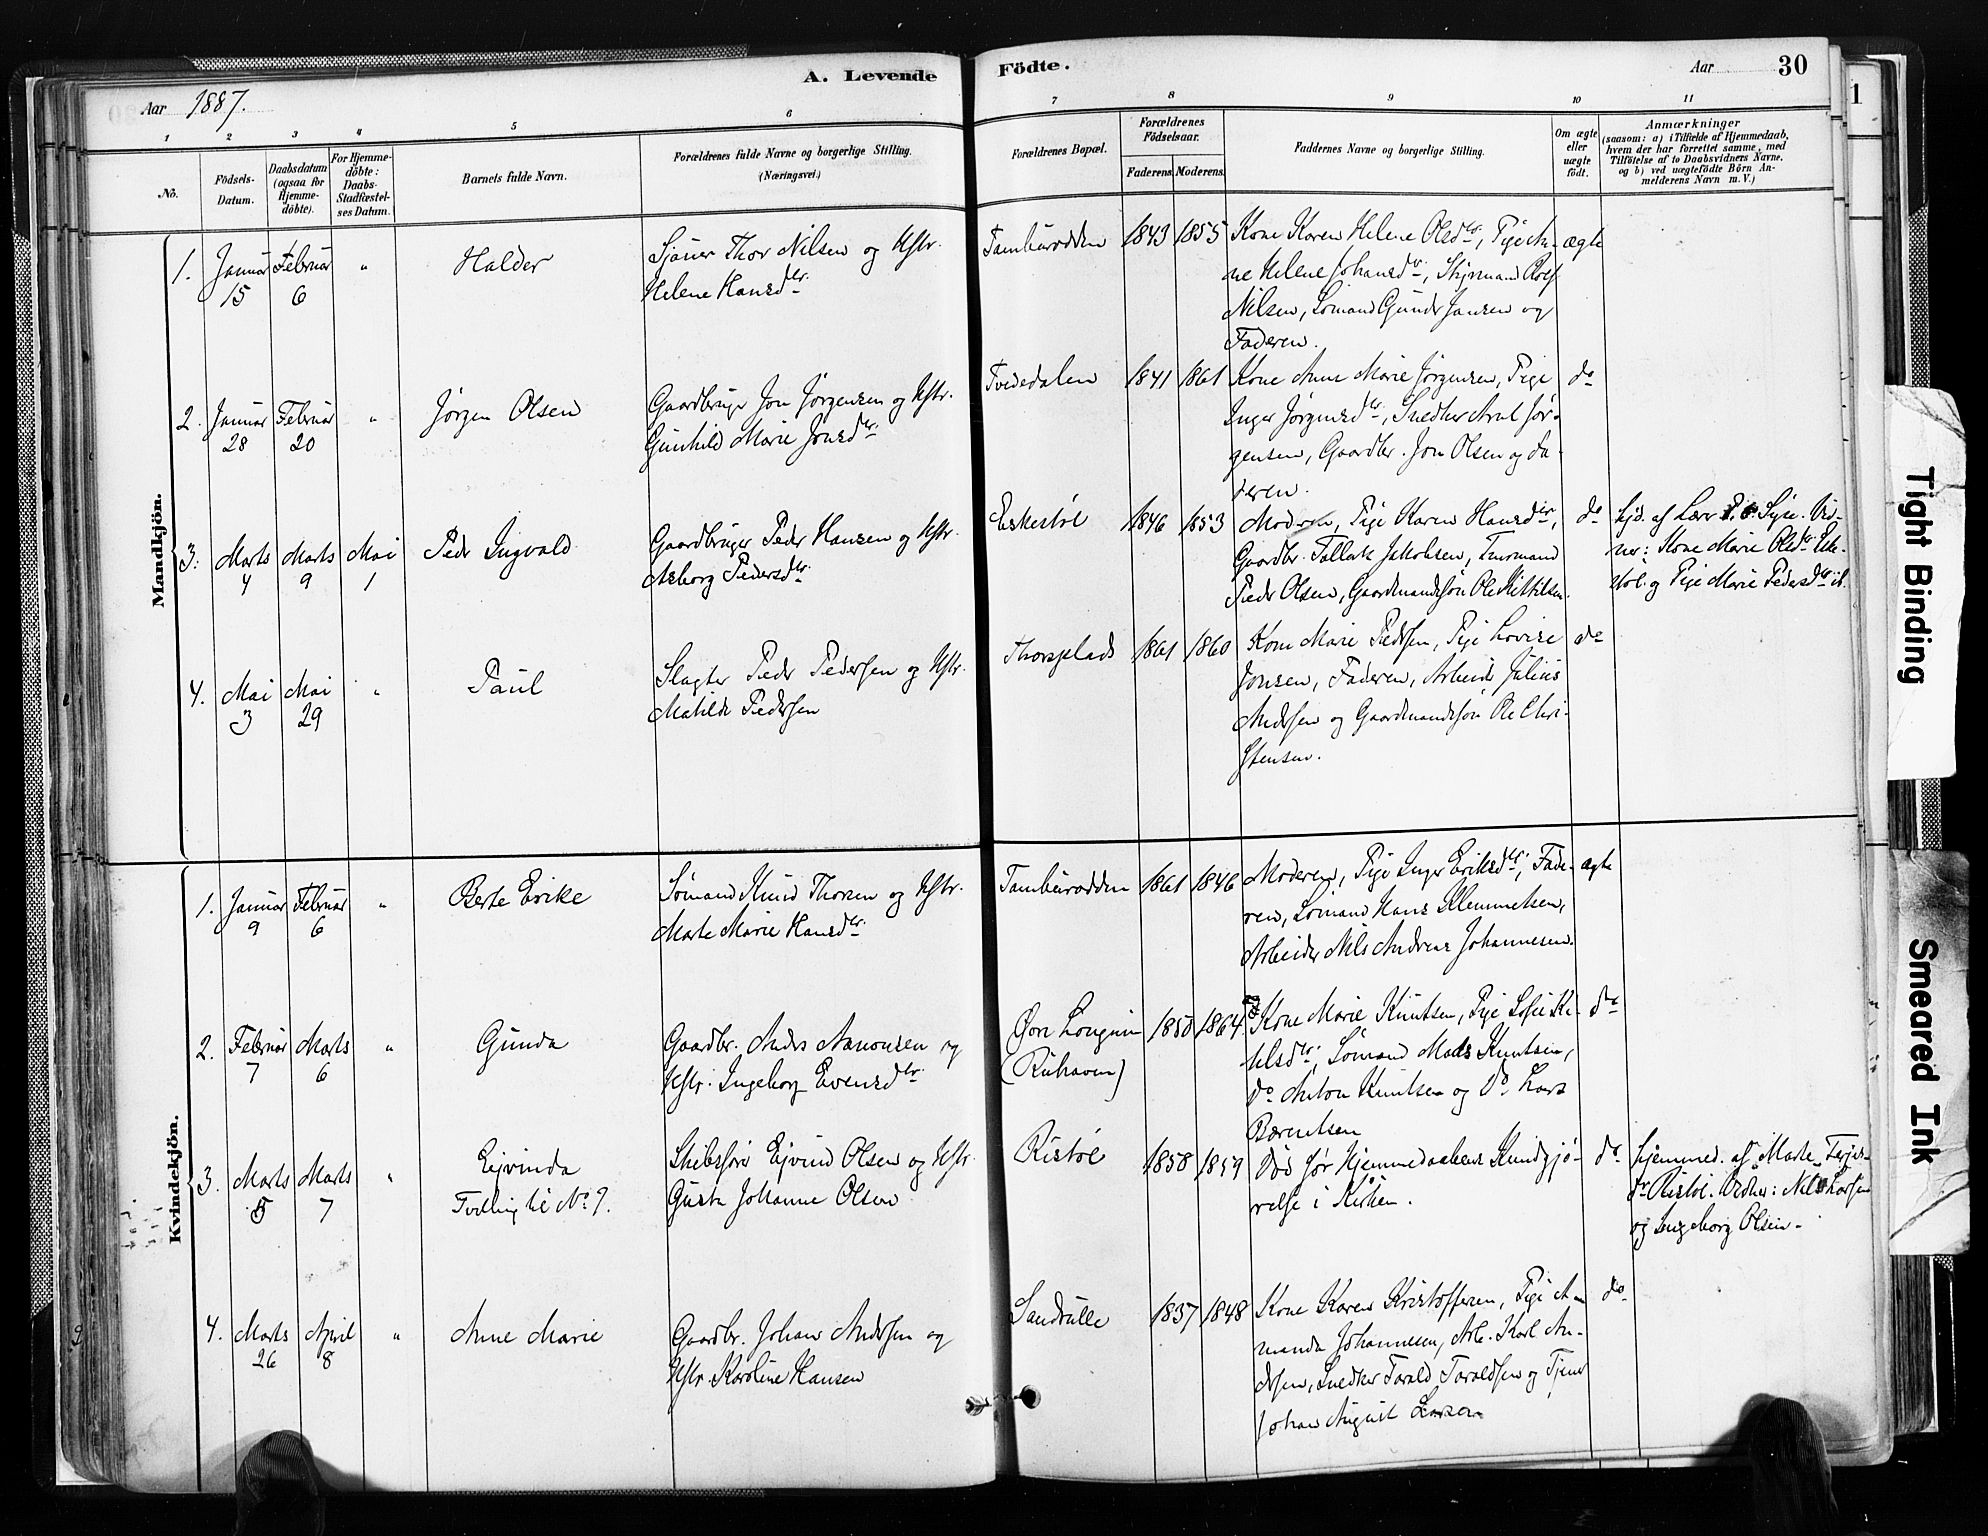 A. Levende Fødte.
Aar 1887.
Aar 30
1 2 3 4 5 6 7 8 9 10 11
No.
Födsels-
Datum.
Daabsdatum
(ogsaa for
Hjemme-
döbte).
For Hjemme-
döbte:
Daabs-
Stadfæstel-
ses Datum.
Barnets fulde Navn.
Forældrenes fulde Navne og borgerlige Stilling.
(Næringsvei.)
Forældrenes Bopæl.
Forældrenes
Födselsaar.
Faderens Moderens
Faddernes Navne og borgerlige Stilling.
Om ægte
eller
uægte
födt.
Anmærkninger
(saasom: a) i Tilfælde af Hjemmedaab,
hvem der har forrettet samme, med
Tilføielse af to Daabsvidners Navne,
og b) ved uægtefödte Börn An-
melderens Navn m. V.)
Mandkjön.
1. Januar 15 Februar 6 " Halder
Sjauer Thor Nilsen og Hstr.
Helene Hansdtr.
Tamburodden 1843 1855
Kone Karen Helene Olsdtr, Pige An-
ne Helene Johansdtr, Styrmand Rolf
Nilsen, Sømand Gunder Jansen og
Faderen.
ægte
2. Januar 28 Februar 20 " Jörgen Olsen
Gaardbruger Jon Jörgensen og Hstr.
Gunhild Marie Jonsdtr.
Tvededalen 1841 1861
Kone Anne Marie Jörgensen, Pige
Inger Jörgensdtr, Snedker Arnt Jör-
gensen, Gaardbr. Jon Olsen og Fa-
deren.
do
3. Marts 4 Marts 9 Mai 1 Peder Ingvald
Gaardbruger Peder Hansen og Hstr.
Asborg Pedersdtr.
Eskestöl 1846 1853
Moderen, Pige Karen Hansdtr,
Gaardbr. Tallak Jakobsen, Tusmand
Peder Olsen, Gaardmandssön Ole Kittilsen.
do
hjd. af Lærer Syre. Vid-
ner: Kone Marie Olsdtr Eske-
stöl og Pige Marie Pedersdtr ib.
4. Mai 3 Mai 29 " Paul
Slagter Peder Pedersen og Hstr.
Matilde Pedersen
Thorsplads 1861 1860
Kone Marie Pedersen, Pige Lovise
Jonsen, Faderen, Arbeider Julius
Andersen og Gaardmandssön Ole Chri-
stensen.
do
Kvindekjön.
1. Januar 9 Februar 6 " Berte Erike
Sømand Knud Thorsen og Hstr.
Marte Marie Hansdtr.
Tamburodden 1861 1846
Moderen, Pige Inger Eriksdtr, Fade-
ren, Sømand Hans Klemmetsen,
Arbeider Nils Andreas Johannesen.
ægte
2. Februar 7 Marts 6 " Gunda
Gaardbr. Anders Aanonsen og
Hstr. Ingeborg Evensdtr.
Övre Longum
(Rishaven)
1850 1864
Kone Marie Knutsen, Pige Sofie Ki-
telsdtr, Sømand Mads Knutsen,
do Anton Knutsen og do Lars
Berentsen
do
3. Marts 5 Marts 7 " Ejvinda
Tvilling til No 9.
Skibsförer Ejvind Olsen og Hstr.
Gusta Johanne Olsen
Ristöl 1858 1859
Död för Hjemmedaabens Kundgjö-
relse i Kirken.
do
hjemmed. af Marte Terjes-
dtr Ristöl. Vidner: Nils Larsen
og Ingeborg Olsen.
4. Marts 26 April 8 " Anne Marie
Gaardbr. Johan Andersen og
Hstr. Karoline Hansen
Sandkulle 1837 1848
Kone Karen Kristoffersen, Pige A-
manda Johannesen, Arb. Karl An-
dersen, Snedker Tarald Taraldsen og Tjener
Johan August Larsen
do
Tight Binding
Smeared Ink